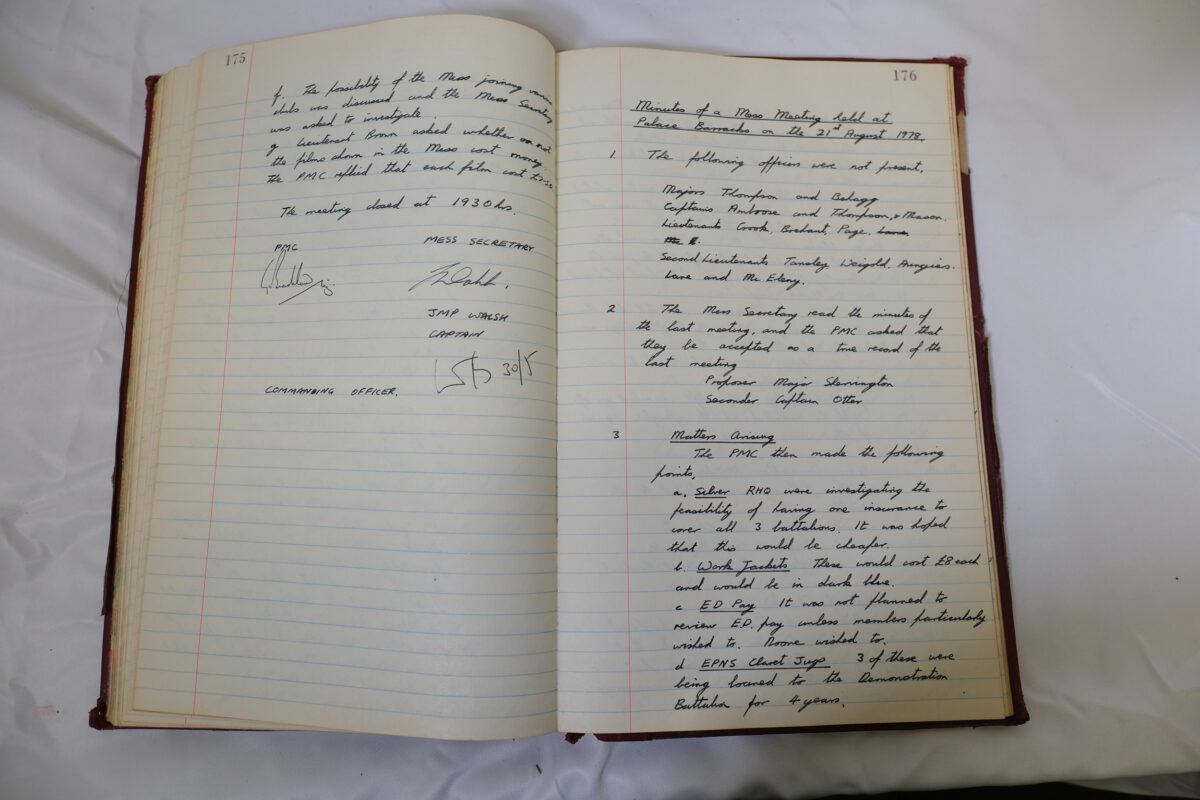 175
f. The possibility of the Mess joining
clubs was discussed and the Mess Secretary
was asked to investigate.
g Lieutenant Brown asked whether or not
the films shown in the Mess cost money.
The PMC replied that each film cost
The meeting closed at 1930 hrs.
PMC
MESS SECRETARY
JMP WALSH
CAPTAIN
30/8
COMMANDING OFFICER.
176
Minutes of a Mess Meeting held at
Palace Barracks on the 21st August 1978.
1. The following officers were not present.
Majors Thompson and Behagg
Captains Ambrose and Thompson, & Mason.
Lieutenants Crook, Brehaut, Page. Lane,
Second Lieutenants Tansley, Weigold, Aungiers.
Lane and Mc Eleny.
2 The Mess Secretary read the minutes of
the last meeting, and the PMC asked that
they be accepted as a true record of the
last meeting
Proposer Major Skevington
Seconder Captain Otter
3 Matters Arising
The PMC then made the following
points,
a. Silver RHQ were investigating the
feasibility of having one insurance to
cover all 3 battalions. It was hoped
that this would be cheaper.
b. Work Jackets These would cost £8 each
and would be in dark blue.
c ED Pay It was not planned to
review E.D. pay unless members particularly
wished to. Noone wished to.
d EPNS Claret Jugs 3 of these were
being loaned to the Demonstration
Battalion for 4 years.